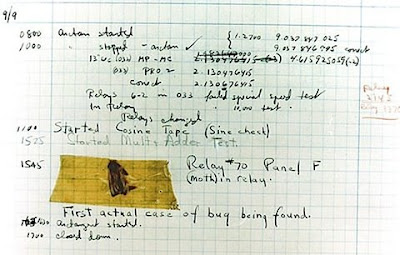 9/9
0800 antan started
1000 " stopped - antan ✓ { 1.2700 9.037 847 025
9.037 846 995 correct
13"uc (032) MP - MC 4.615925059(-2)
(033) PRO 2 2.130476415
correct 2.130676415
Relays 6-2 in 033 failed special speed test
in relay 10,000 test.
Relay
Relays changed
1100 Started Cosine Tape (Sine check)
1525 Started Multi Adder Test.
1545 Relay #70 Panel F
(moth) in relay.
First actual case of bug being found.
antangent started.
1700 closed down.